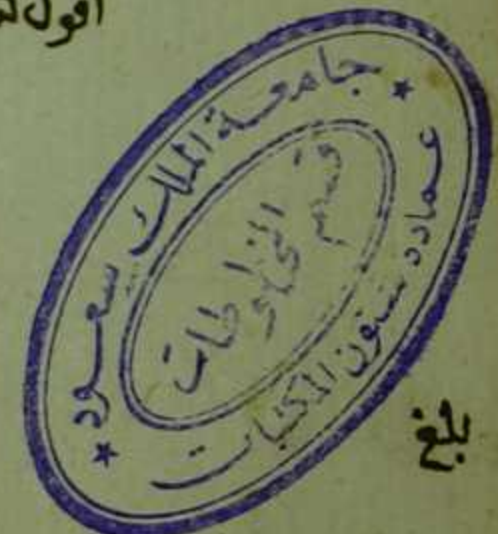 اقول
جامعة الملك سعود
عمادة شئون المكتبات
قسم المخطوطات
بلغ